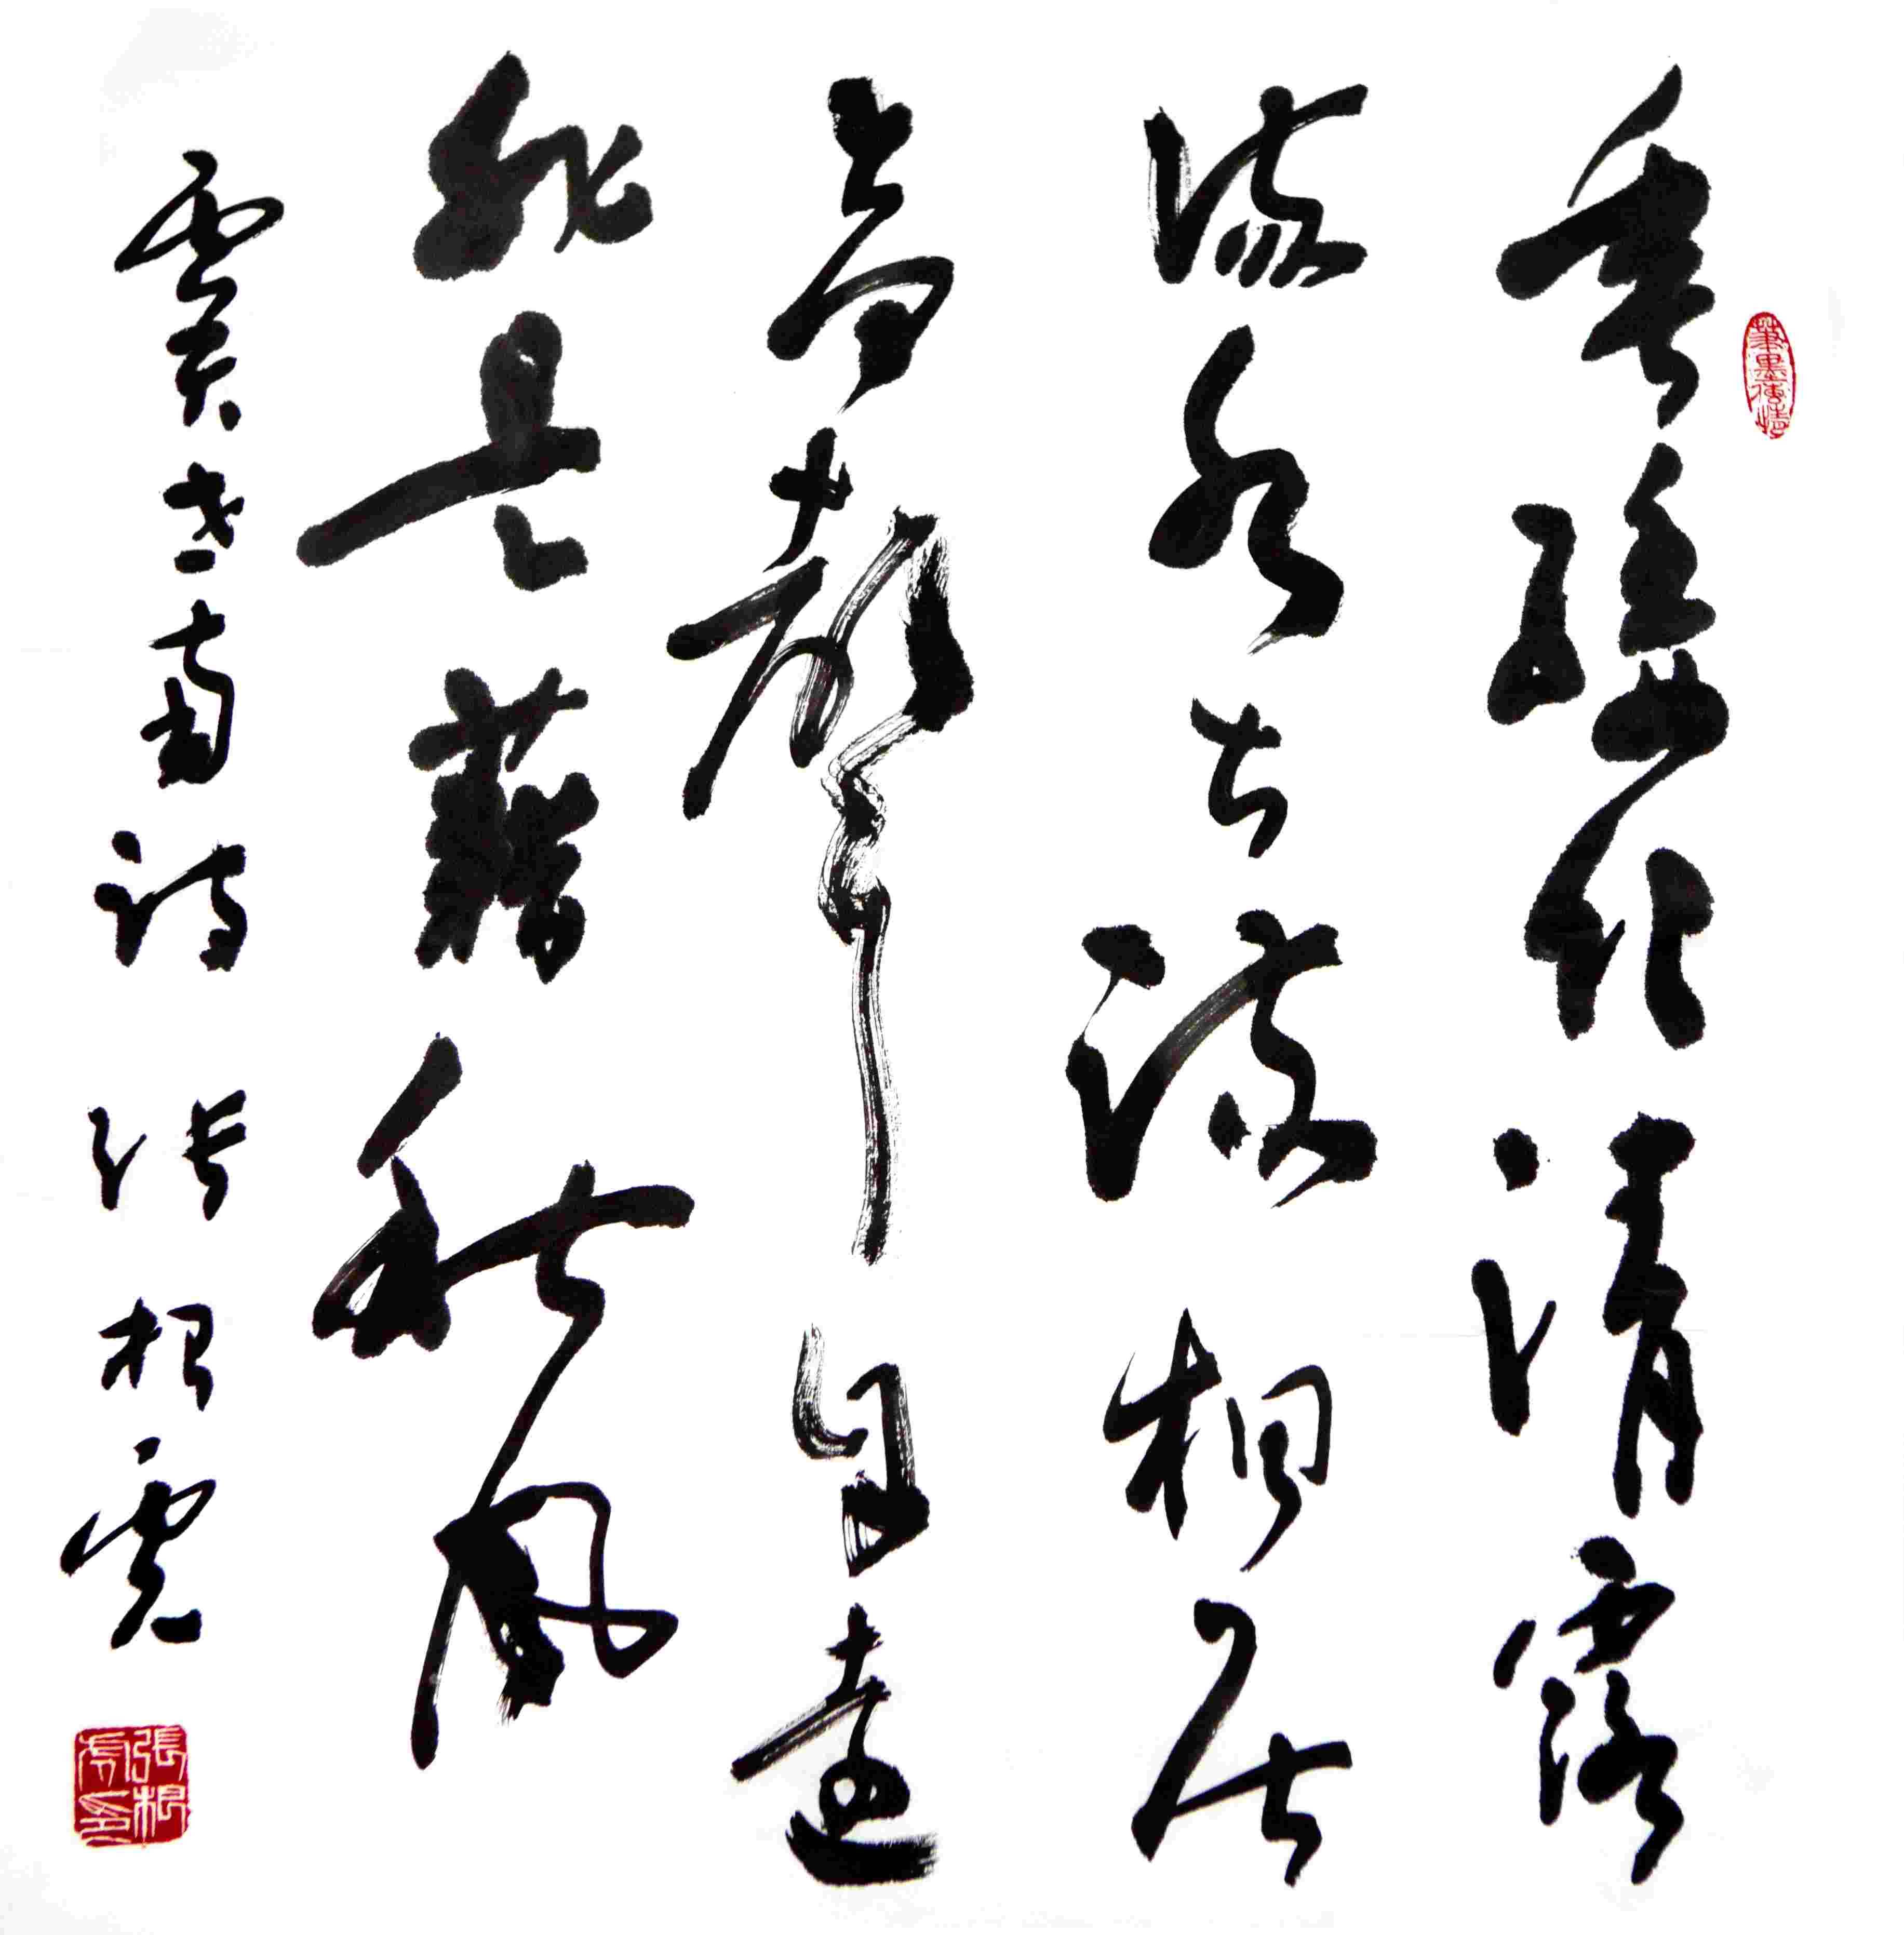 筆墨傳情
垂緌飲清露
流響出疏桐居
高聲自遠
非是藉秋風
虞世南詩 張根虎
張根虎印